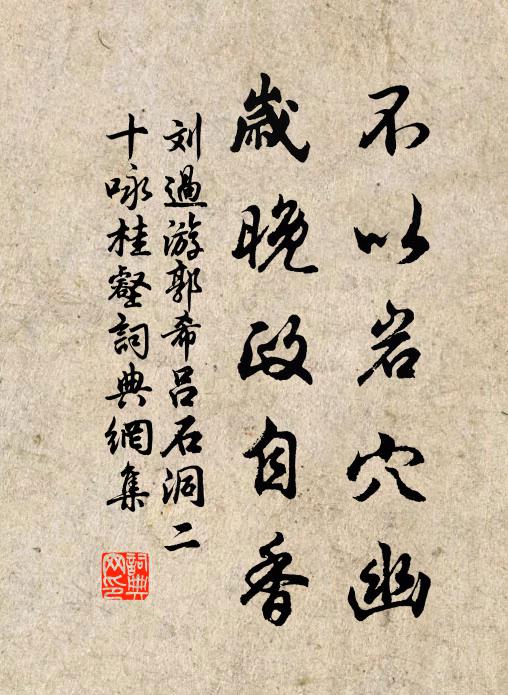 不以岩穴幽
歲晚政自香
刘過游郭希吕石洞二
十咏桂壑詞典網集
詞典
网印